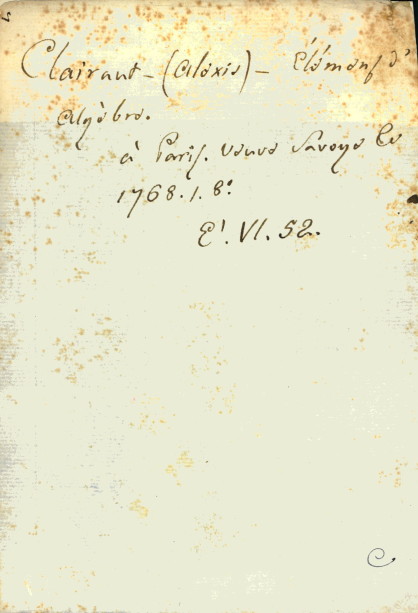 Clairaut - (Alexis) - Élémens d'
Algèbre.
à Paris. veuve Savoye
1768. 1. 8º
E'. VI. 52.
C